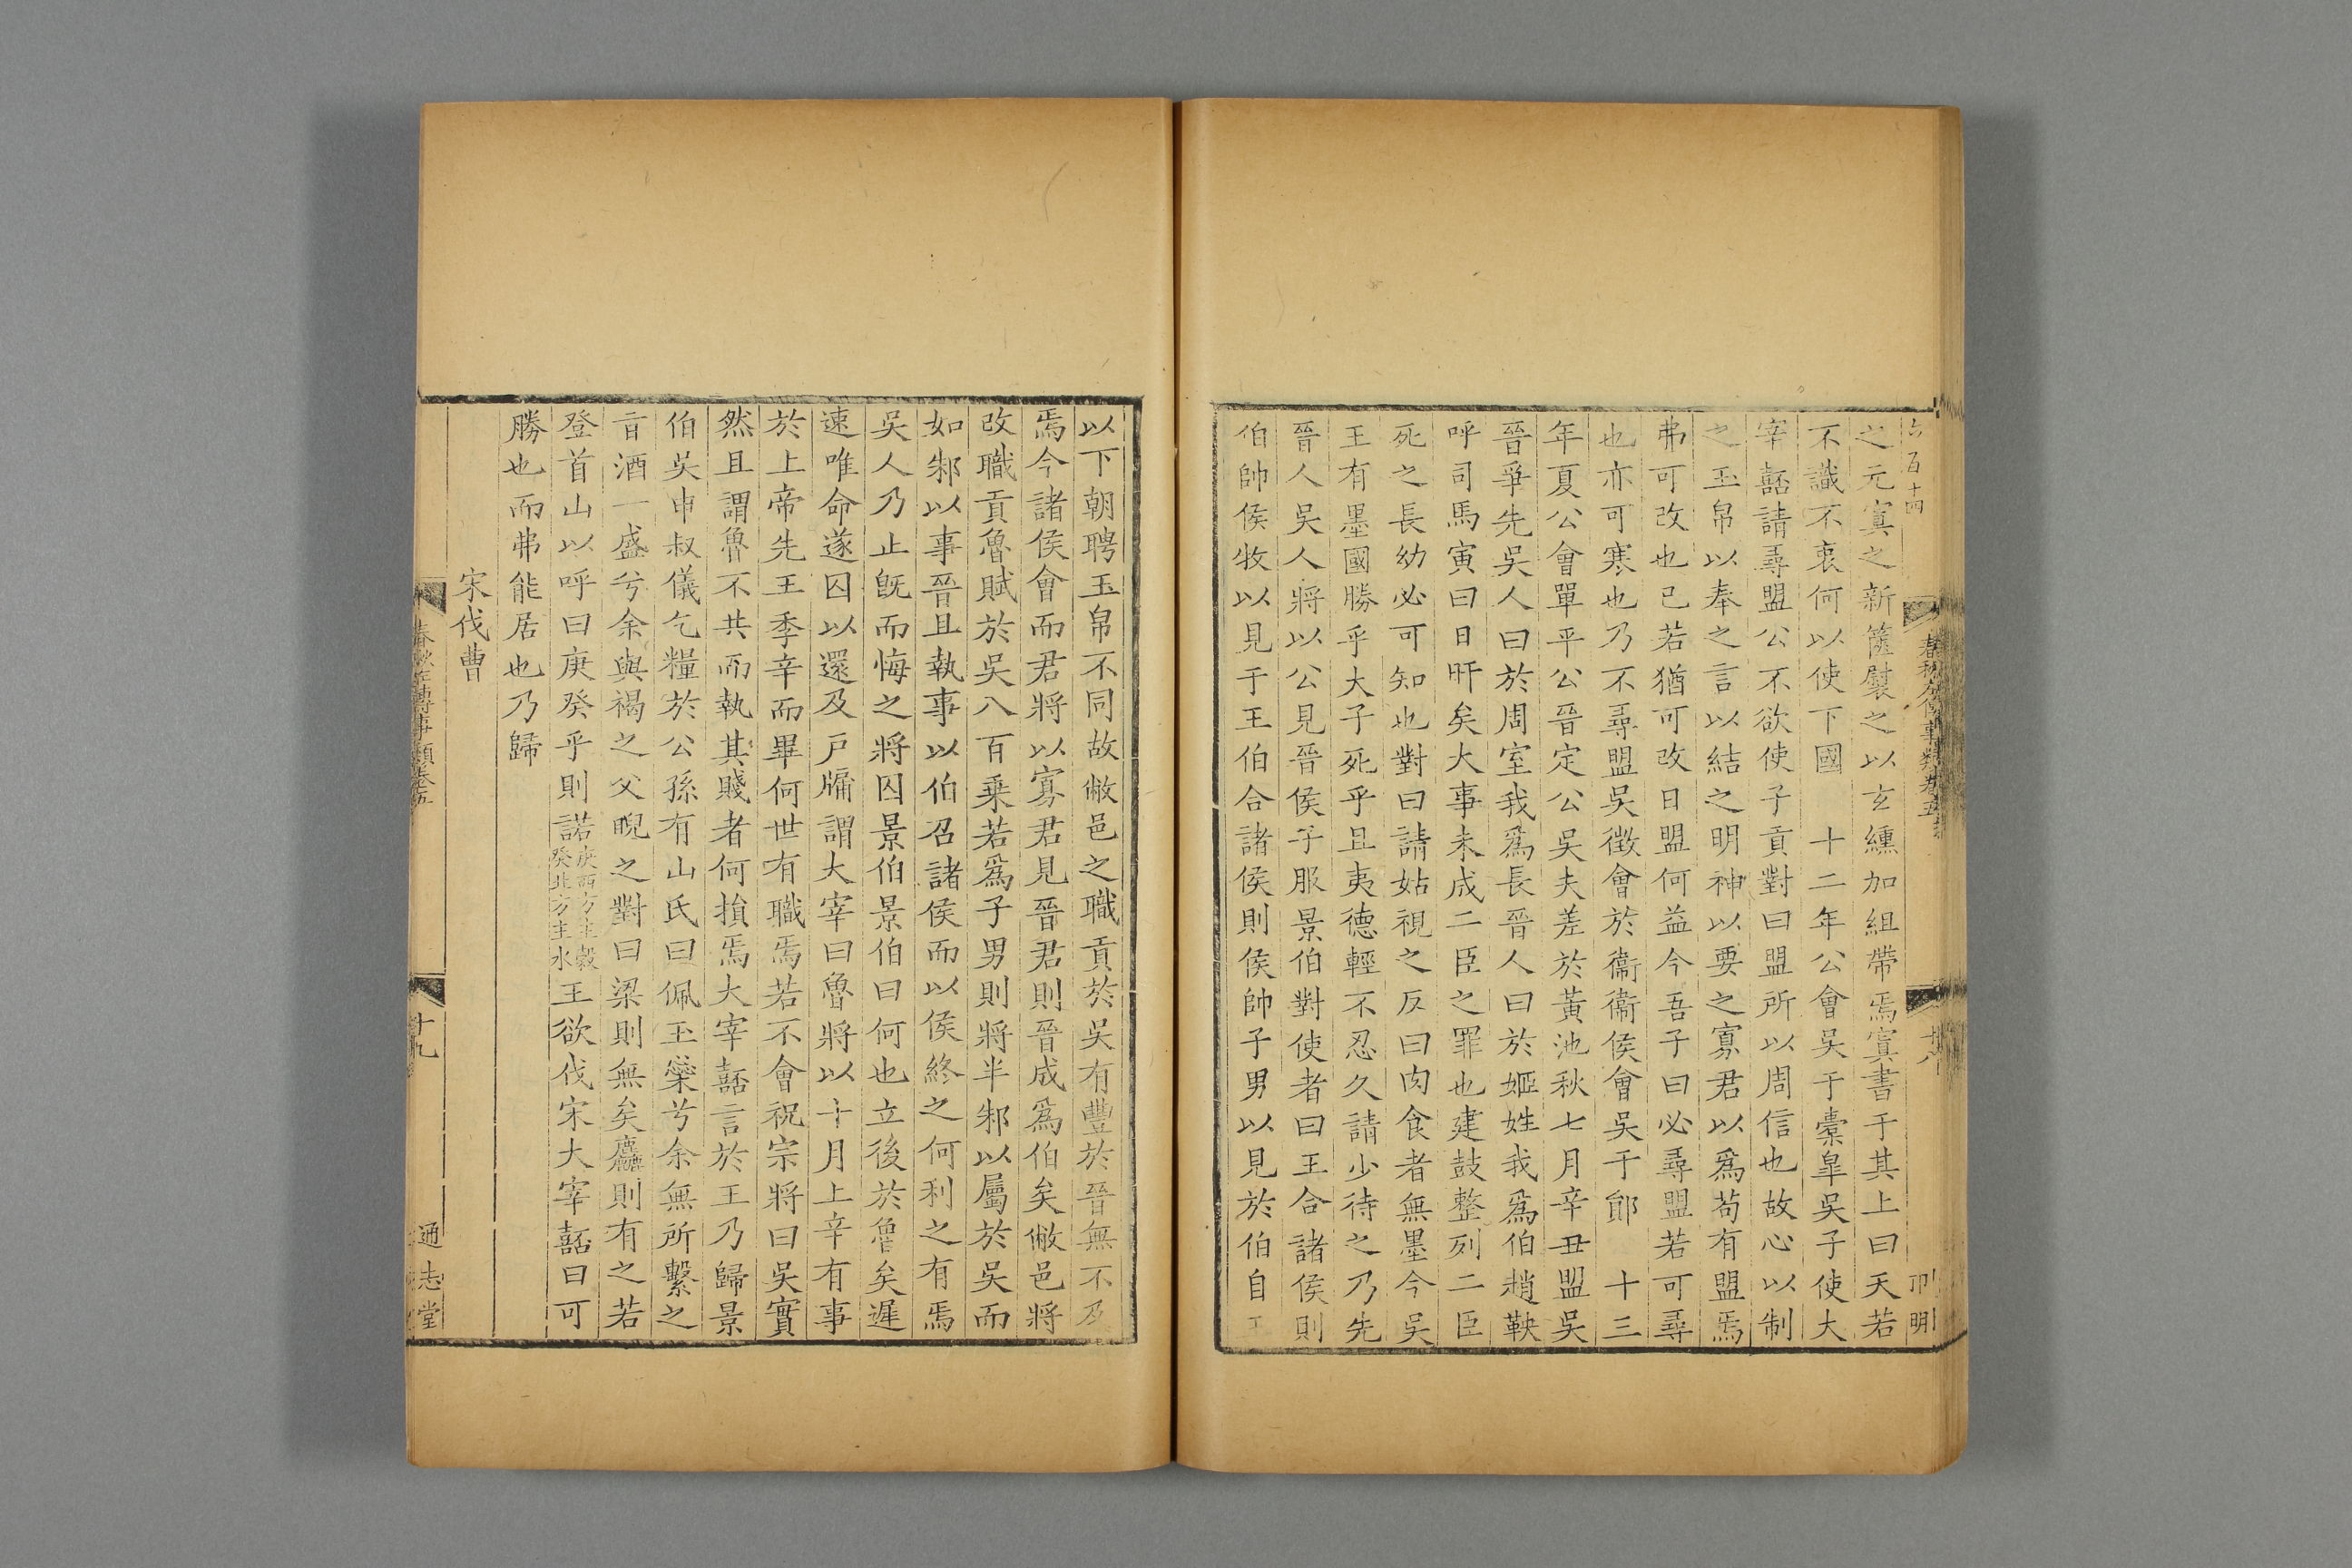 六百十四
春秋左傳事類卷五
十八
卬明
之元寘之新篋褽之以玄纁加組帶焉寘書于其上曰天若
不識不衷何以使下國　十二年公會吳于橐皐吳子使大
宰嚭請尋盟公不欲使子貢對曰盟所以周信也故心以制
之玉帛以奉之言以結之明神以要之寡君以爲苟有盟焉
弗可改也已若猶可改日盟何益今吾子曰必尋盟若可尋
也亦可寒也乃不尋盟吳徵會於衞衞侯會吳于鄖　十三
年夏公會單平公晉定公吳夫差於黃池秋七月辛丑盟吳
晉爭先吳人曰於周室我爲長晉人曰於姬姓我爲伯趙鞅
呼司馬寅曰日旰矣大事未成二臣之罪也建鼓整列二臣
死之長幼必可知也對曰請姑視之反曰肉食者無墨今吳
王有墨國勝乎大子死乎且夷德輕不忍久請少待之乃先
晉人吳人將以公見晉侯子服景伯對使者曰王合諸侯則
伯帥侯牧以見于王伯合諸侯則侯帥子男以見於伯自王
以下朝聘玉帛不同故敝邑之職貢於吳有豐於晉無不及
焉今諸侯會而君將以寡君見晉君則晉成爲伯矣敝邑將
改職貢魯賦於吳八百乗若爲子男則將半邾以屬於吳而
如邾以事晉且執事以伯召諸侯而以侯終之何利之有焉
吳人乃止旣而悔之將囚景伯景伯曰何也立後於魯矣遲
速唯命遂囚以還及戸牖謂大宰曰魯將以十月上辛有事
於上帝先王季辛而畢何世有職焉若不會祝宗將曰吳實
然且謂魯不共而執其賤者何損焉大宰嚭言於王乃歸景
伯吳申叔儀乞糧於公孫有山氏曰佩玉縈兮余無所繫之
旨酒一盛兮余與褐之父睨之對曰梁則無矣麤則有之若
登首山以呼曰庚癸乎則諾庚西方主穀癸北方主水王欲伐宋大宰嚭曰可
勝也而弗能居也乃歸
宋伐曹
春秋左傳事類卷五
十九
通志堂